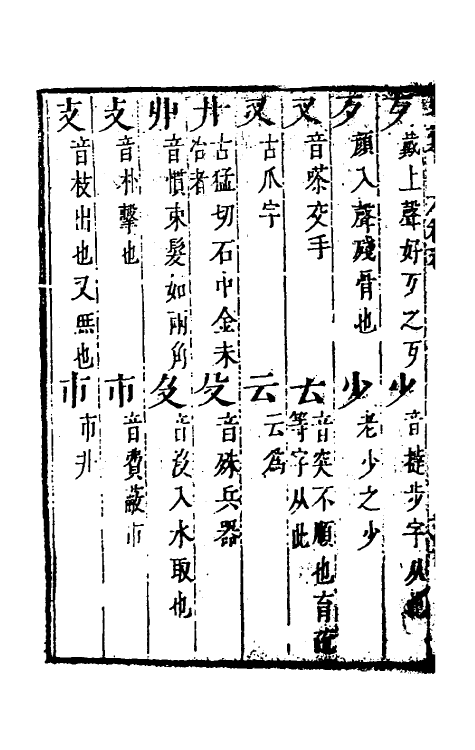 歹 戴上聲好歹之歹
𣥂 音撻步字从此
歺 顏入聲殘骨也
少 老少之少
叉 音嗏交手
𠫓 音突不順也育㐬等字从此
㕚 古爪字
云 云為
卝 古猛切石中金未冶者
殳 音殊兵器
丱 音慣束髮如兩角
𠬛 音沒入水取也
攴 音朴擊也
巿 音費蔽巿
支 音枝出也又無也
市 市井